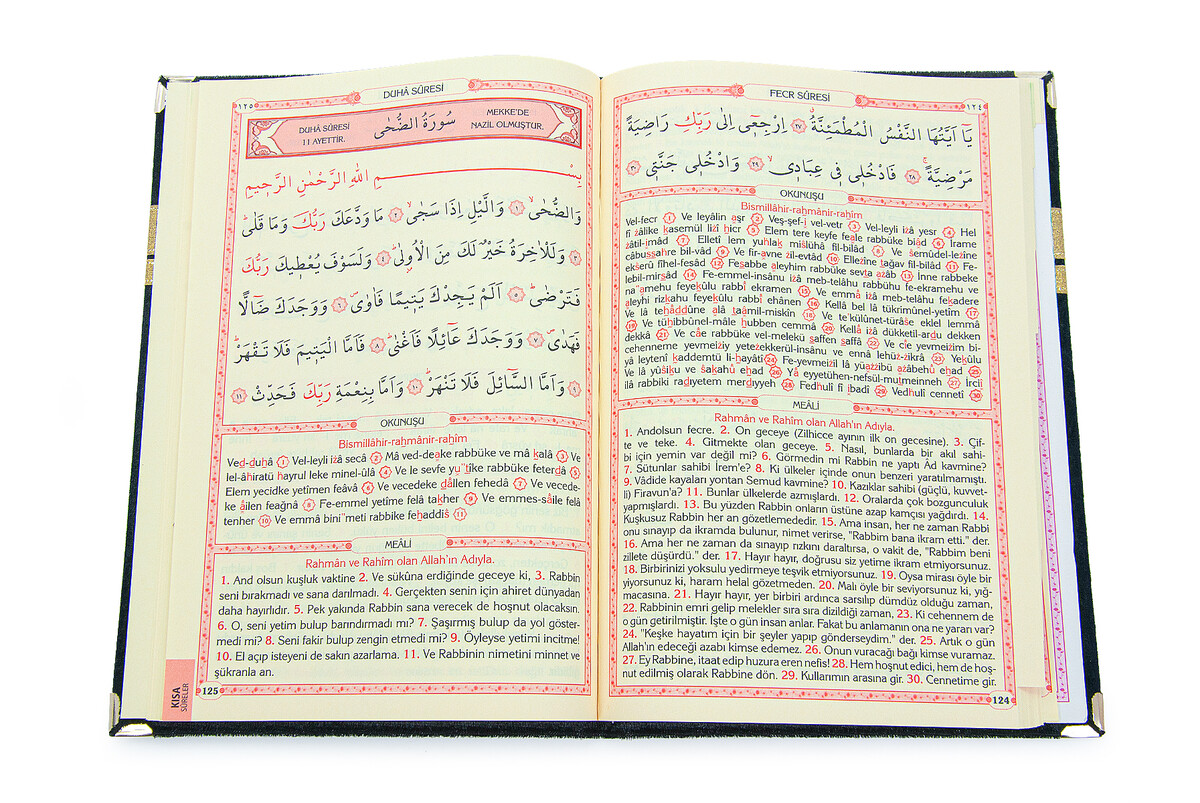 FECR SÛRESİ
١٢٤
يَٓا اَيَّتُهَا النَّفْسُ الْمُطْمَئِنَّةُۗ ﴿٢٧﴾ اِرْجِع۪ٓي اِلٰى رَبِّكِ رَاضِيَةً
مَرْضِيَّةًۚ ﴿٢٨﴾ فَادْخُل۪ي ف۪ي عِبَاد۪يۙ ﴿٢٩﴾ وَادْخُل۪ي جَنَّت۪ي ﴿٣٠﴾
OKUNUŞU
Bismillâhir-raḥmânir-raḥîm
Vel-fecr (1) Ve leyâlin aşr (2) Veş-şef-i vel-vetr (3) Vel-leyli iżâ yesr (4) Hel
fî żâlike ḳasemül liżî ḥicr (5) Elem tere keyfe feale rabbüke biâd (6) İrame
żâtil-imâd (7) Elletî lem yuḫlaḳ miŝlühâ fil-bilâd (8) Ve ŝemûdel-lezîne
câbuṣṣaḫre bil-vâd (9) Ve fir-avne żil-evtâd (10) Elleżîne ṭağav fil-bilâd (11) Fe-
ekŝerû fîhel-fesâd (12) Feṣabbe aleyhim rabbüke sevṭa ażâb (13) İnne rabbeke
lebil-mirṣâd (14) Fe-emmel-insânu iżâ meb-telâhu rabbühu fe-ekramehu ve
na"amehu feyeḳûlu rabbî ekramen (15) Ve emmâ iżâ meb-telâhu feḳadere
aleyhi rizḳahu feyeḳûlu rabbî ehânen (16) Kellâ bel lâ tükrimûnel-yetîm (17)
Ve lâ teḥâḍḍûne alâ ṭaâmil-miskîn (18) Ve te'külûnet-türâŝe eklel lemmâ
(19) Ve tüḥibbûnel-mâle ḥubben cemmâ (20) Kellâ iżâ dükketil-arḍu dekken
dekkâ (21) Ve câe rabbüke vel-melekü ṣaffen ṣaffâ (22) Ve cîe yevmeiżim bi-
cehenneme yevmeiżiy yeteżekkerül-insânu ve ennâ lehüż-żikrâ (23) Yeḳûlu
yâ leytenî ḳaddemtü li-ḥayâtî (24) Fe-yevmeiżil lâ yüażżibü ażâbehû eḥad (25)
Ve lâ yûŝiḳu ve ŝaḳahû eḥad (26) Yâ eyyetühen-nefsül-muṭmeinneh (27) İrciî
ilâ rabbiki râḍıyetem merḍıyyeh (28) Fedḫulî fî ibadî (29) Vedḫulî cennetî (30)
MEÂLİ
Rahmân ve Rahîm olan Allah'ın Adıyla.
1. Andolsun fecre. 2. On geceye (Zilhicce ayının ilk on gecesine). 3. Çif-
te ve teke. 4. Gitmekte olan geceye. 5. Nasıl, bunlarda bir akıl sahi-
bi için yemin var değil mi? 6. Görmedin mi Rabbin ne yaptı Âd kavmine?
7. Sütunlar sahibi İrem'e? 8. Ki ülkeler içinde onun benzeri yaratılmamıştı.
9. Vâdide kayaları yontan Semud kavmine? 10. Kazıklar sahibi (güçlü, kuvvet-
li) Firavun'a? 11. Bunlar ülkelerde azmışlardı. 12. Oralarda çok bozgunculuk
yapmışlardı. 13. Bu yüzden Rabbin onların üstüne azap kamçısı yağdırdı. 14.
Kuşkusuz Rabbin her an gözetlemededir. 15. Ama insan, her ne zaman Rabbi
onu sınayıp da ikramda bulunur, nimet verirse, "Rabbim bana ikram etti." der.
16. Ama her ne zaman da sınayıp rızkını daraltırsa, o vakit de, "Rabbim beni
zillete düşürdü." der. 17. Hayır hayır, doğrusu siz yetime ikram etmiyorsunuz.
18. Birbirinizi yoksulu yedirmeye teşvik etmiyorsunuz. 19. Oysa mirası öyle bir
yiyorsunuz ki, haram helal gözetmeden. 20. Malı öyle bir seviyorsunuz ki, yığ-
macasına. 21. Hayır hayır, yer birbiri ardınca sarsılıp dümdüz olduğu zaman,
22. Rabbinin emri gelip melekler sıra sıra dizildiği zaman, 23. Ki cehennem de
o gün getirilmiştir. İşte o gün insan anlar. Fakat bu anlamanın ona ne yararı var?
24. "Keşke hayatım için bir şeyler yapıp gönderseydim." der. 25. Artık o gün
Allah'ın edeceği azabı kimse edemez. 26. Onun vuracağı bağı kimse vuramaz.
27. Ey Rabbine, itaat edip huzura eren nefis! 28. Hem hoşnut edici, hem de hoş-
nut edilmiş olarak Rabbine dön. 29. Kullarımın arasına gir. 30. Cennetime gir.
124
١٢٥
DUHÂ SÛRESİ
DUHÂ SÛRESİ
11 AYETTİR.
سُورَةُ الضُّحٰى
MEKKE'DE
NAZİL OLMUŞTUR.
بِسْمِ اللّٰهِ الرَّحْمٰنِ الرَّح۪يمِ
وَالضُّحٰىۙ ﴿١﴾ وَالَّيْلِ اِذَا سَجٰىۙ ﴿٢﴾ مَا وَدَّعَكَ رَبُّكَ وَمَا قَلٰىۜ
﴿٣﴾ وَلَلْاٰخِرَةُ خَيْرٌ لَكَ مِنَ الْاُو۫لٰىۜ ﴿٤﴾ وَلَسَوْفَ يُعْط۪يكَ رَبُّكَ
فَتَرْضٰىۜ ﴿٥﴾ اَلَمْ يَجِدْكَ يَت۪يمًا فَاٰوٰىۖ ﴿٦﴾ وَوَجَدَكَ ضَٓالًّا
فَهَدٰىۖ ﴿٧﴾ وَوَجَدَكَ عَٓائِلًا فَاَغْنٰىۜ ﴿٨﴾ فَاَمَّا الْيَت۪يمَ فَلَا تَقْهَرْۜ
﴿٩﴾ وَاَمَّا السَّٓائِلَ فَلَا تَنْهَرْۜ ﴿١٠﴾ وَاَمَّا بِنِعْمَةِ رَبِّكَ فَحَدِّثْ ﴿١١﴾
OKUNUŞU
Bismillâhir-raḥmânir-raḥîm
Veḍ-ḍuḥâ (1) Vel-leyli iżâ secâ (2) Mâ ved-deake rabbüke ve mâ ḳalâ (3) Ve
lel-âḫiratü ḫayrul leke minel-ûlâ (4) Ve le sevfe yu"ṭîke rabbüke feterḍâ (5)
Elem yecidke yetîmen feâvâ (6) Ve vecedeke ḍâllen fehedâ (7) Ve vecede-
ke âilen feağnâ (8) Fe-emmel yetîme felâ taḳher (9) Ve emmes-sâile felâ
tenher (10) Ve emmâ bini"meti rabbike feḥaddiŝ (11)
MEÂLİ
Rahmân ve Rahîm olan Allah'ın Adıyla.
1. And olsun kuşluk vaktine 2. Ve sükûna erdiğinde geceye ki, 3. Rabbin
seni bırakmadı ve sana darılmadı. 4. Gerçekten senin için ahiret dünyadan
daha hayırlıdır. 5. Pek yakında Rabbin sana verecek de hoşnut olacaksın.
6. O, seni yetim bulup barındırmadı mı? 7. Şaşırmış bulup da yol göster-
medi mi? 8. Seni fakir bulup zengin etmedi mi? 9. Öyleyse yetimi incitme!
10. El açıp isteyeni de sakın azarlama. 11. Ve Rabbinin nimetini minnet ve
şükranla an.
125
KISA
SÛRELER